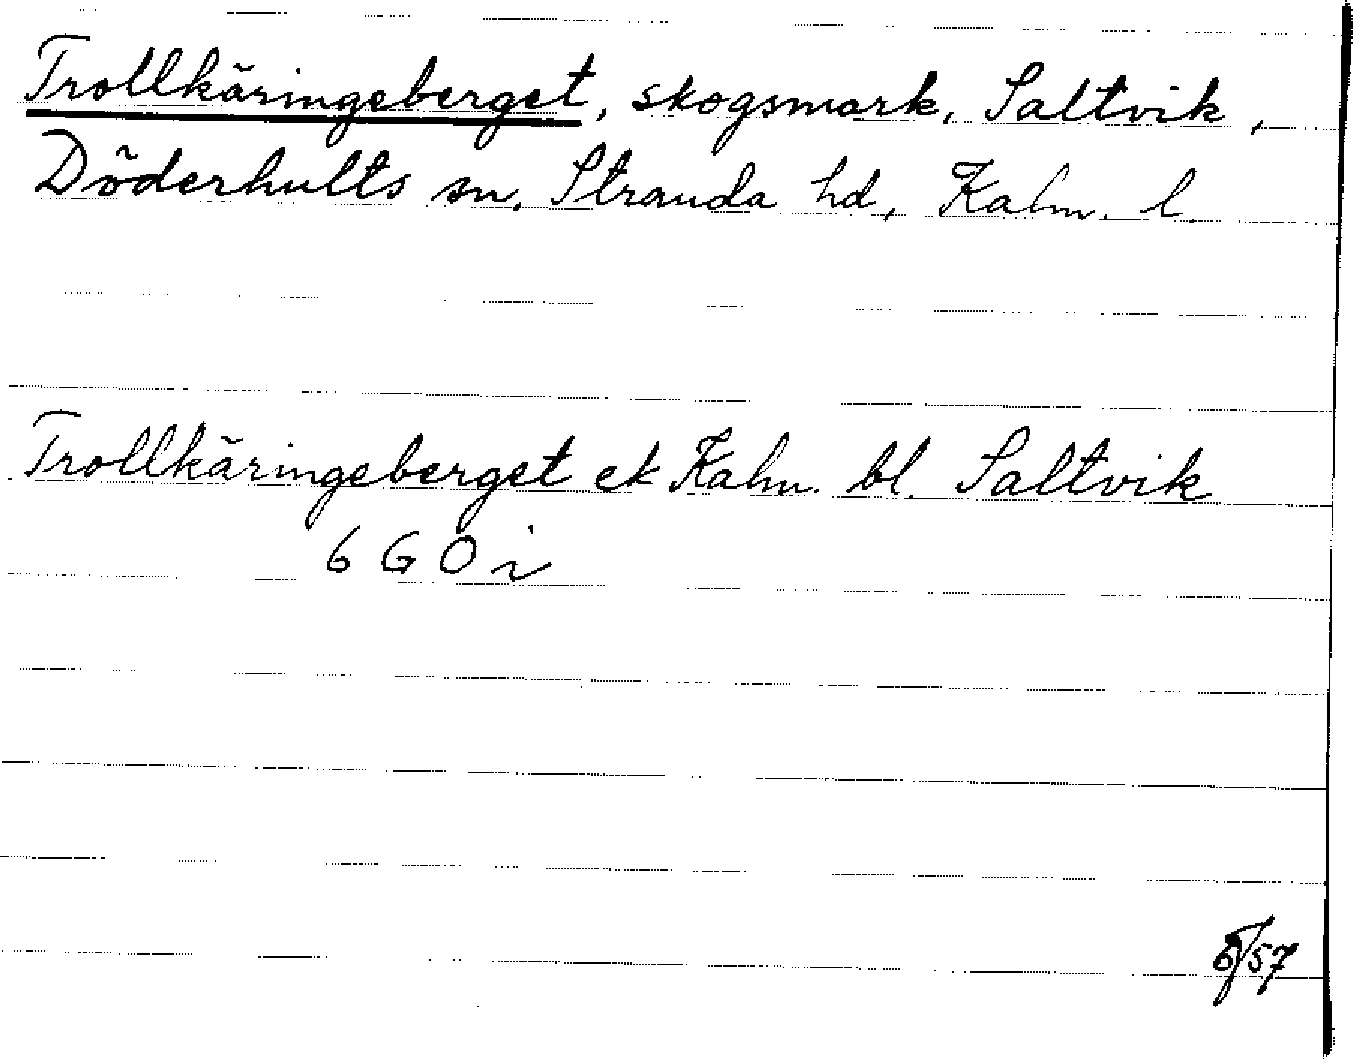 Trollkäringeberget, skogsmark, Saltvik,
Döderhults sn, Stranda hd, Kalm. l.
Trollkäringeberget ek Kalm. bl. Saltvik
6 G 0 i